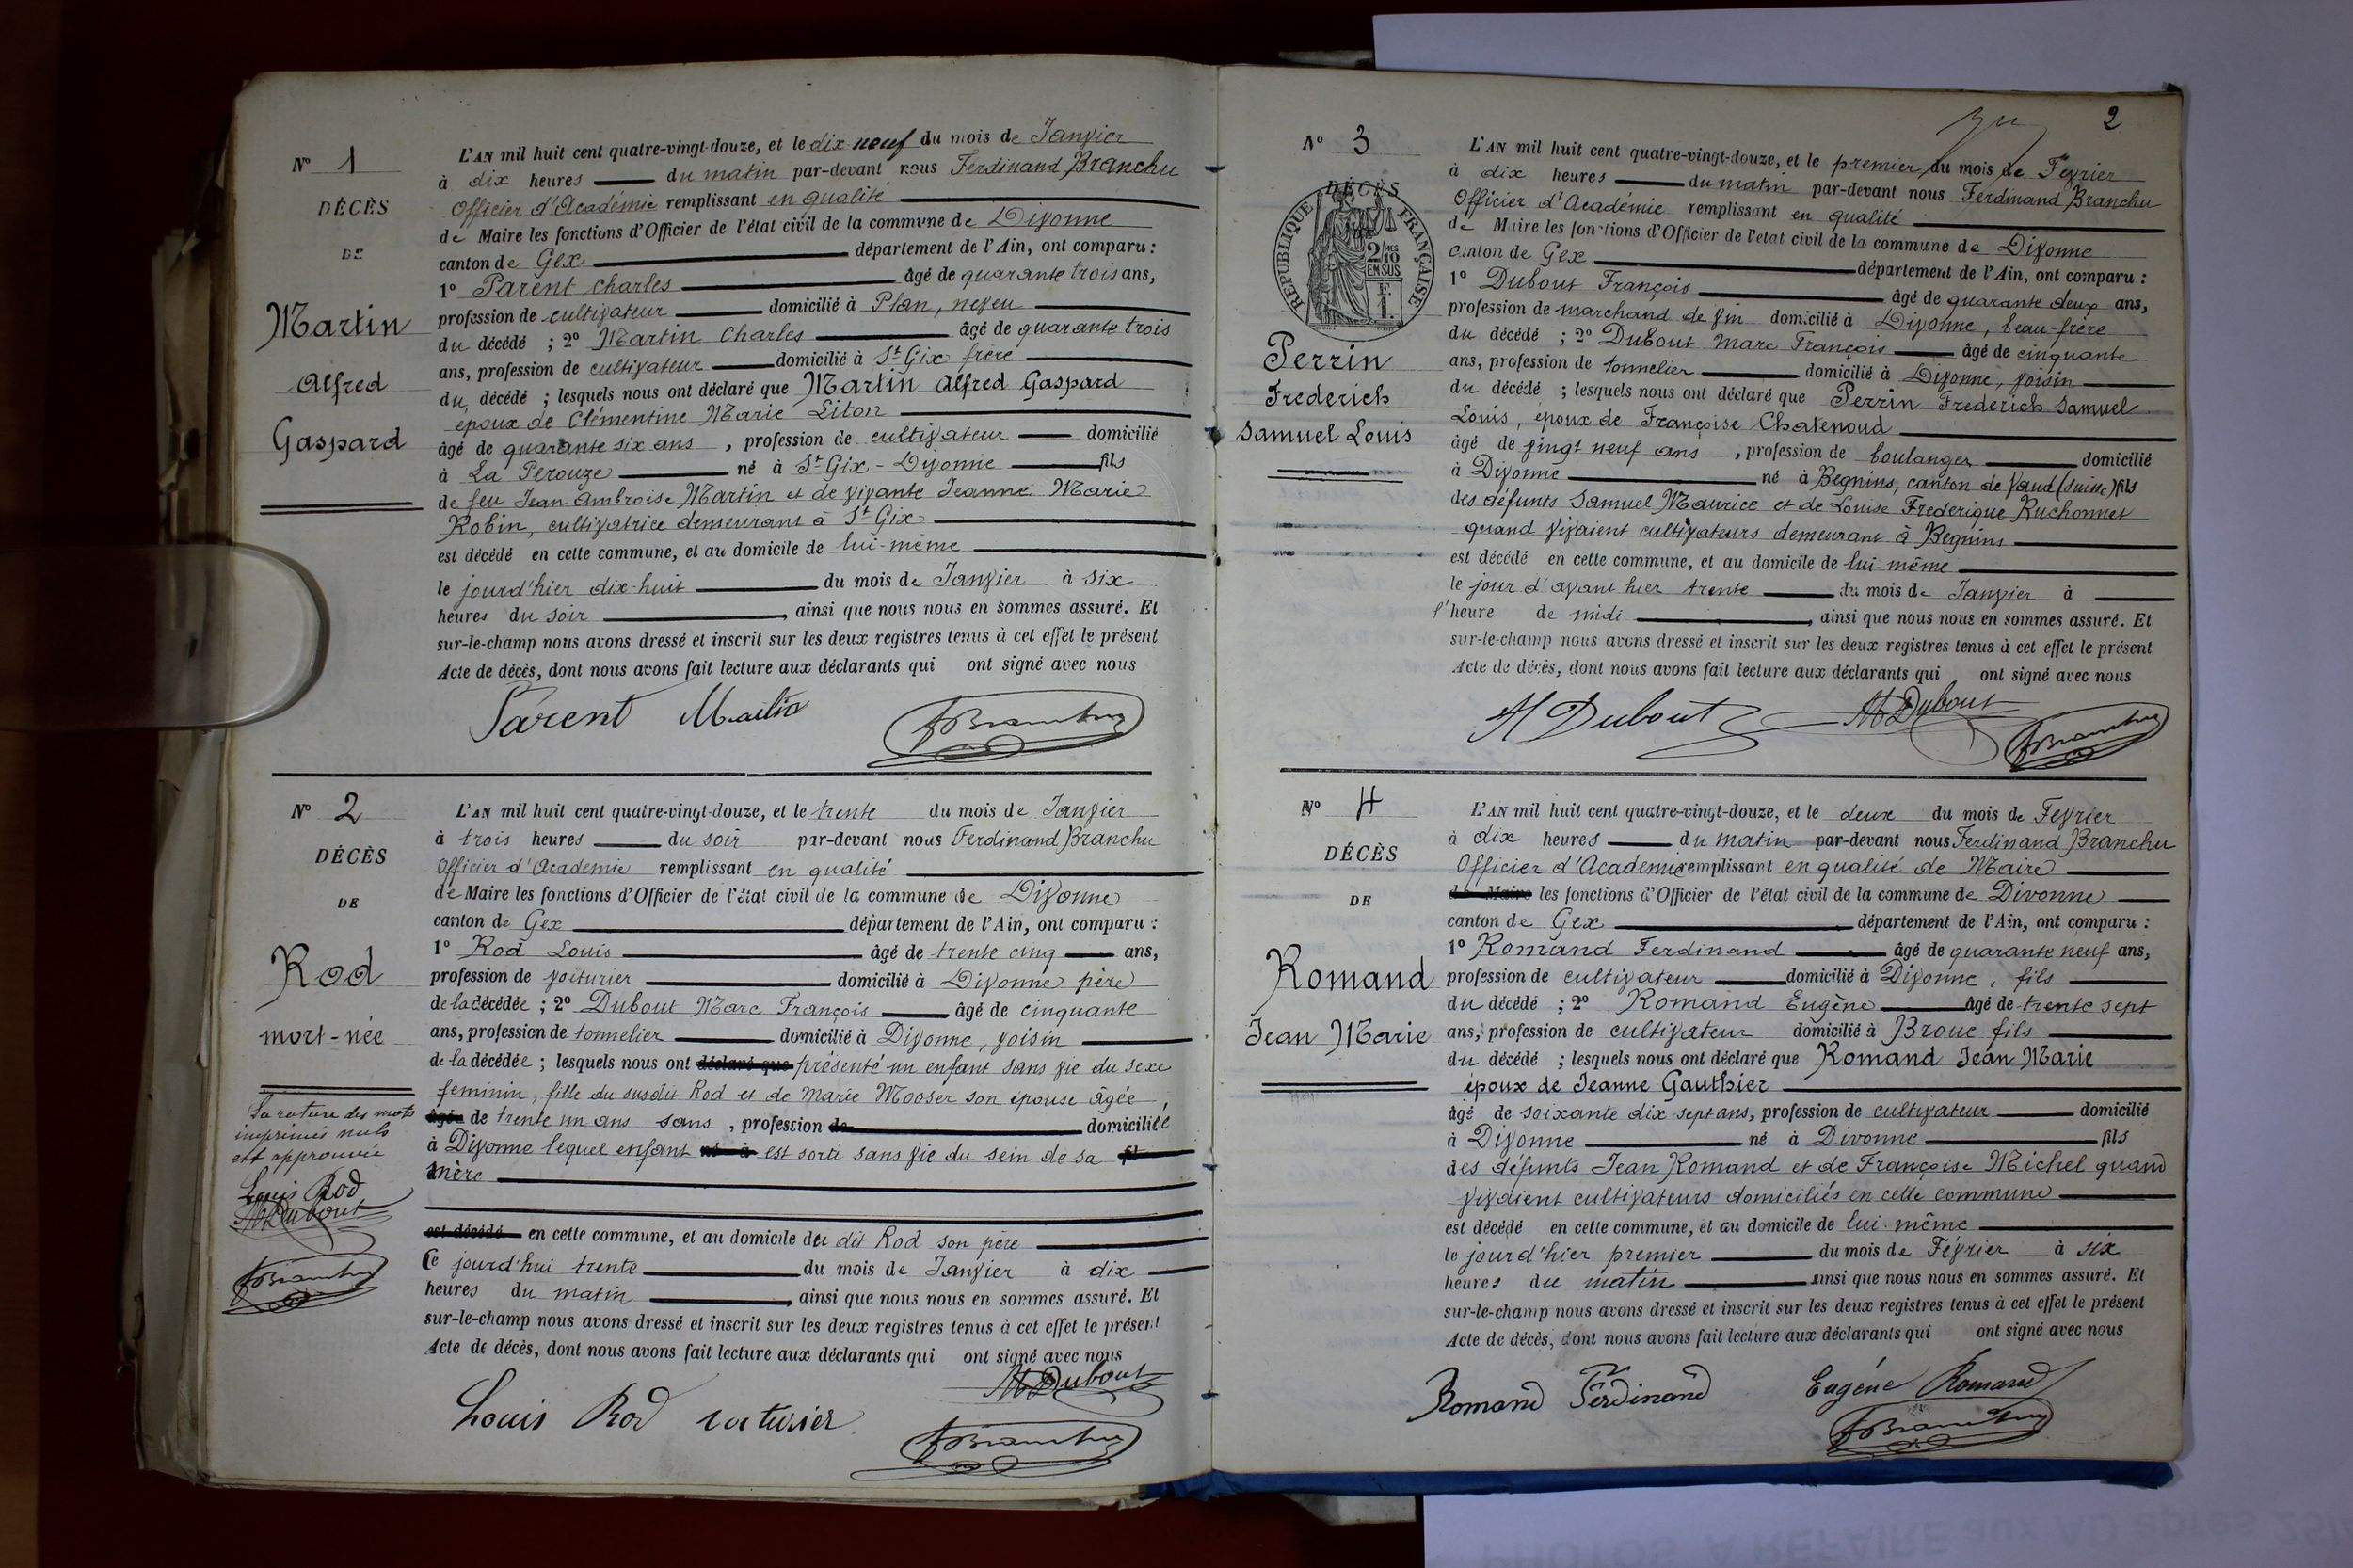 N° 1
DÉCÈS
DE
Martin
Alfred
Gaspard
L'AN mil huit cent quatre-vingt-douze, et le dix-neuf du mois de Janvier
à dix heures du matin par-devant nous Ferdinand Branchu
Officier d'Académie remplissant en qualité
de Maire les fonctions d'Officier de l'état civil de la commune de Divonne
canton de Gex département de l'Ain, ont comparu :
1° Parent Charles âgé de quarante trois ans,
profession de cultivateur domicilié à Plan, neveu
du décédé ; 2° Martin Charles âgé de quarante trois
ans, profession de cultivateur domicilié à St Gix frère
du décédé ; lesquels nous ont déclaré que Martin Alfred Gaspard
époux de Clémentine Marie Liton
âgé de quarante six ans , profession de cultivateur domicilié
à La Perouze né à St Gix - Divonne fils
de feu Jean Ambroise Martin et de vivante Jeanne Marie
Robin, cultivatrice demeurant à St Gix
est décédé en cette commune, et au domicile de lui-même
le jourd'hier dix-huit du mois de Janvier à six
heures du soir , ainsi que nous nous en sommes assuré. Et
sur-le-champ nous avons dressé et inscrit sur les deux registres tenus à cet effet le présent
Acte de décès, dont nous avons fait lecture aux déclarants qui ont signé avec nous
Parent Martin FBranchu
N° 2
DÉCÈS
DE
Rod
mort-née
La rature des mots
imprimés nuls
est approuvée
Louis Rod
MDubout
FBranchu
L'AN mil huit cent quatre-vingt-douze, et le trente du mois de Janvier
à trois heures du soir par-devant nous Ferdinand Branchu
Officier d'Academie remplissant en qualité
de Maire les fonctions d'Officier de l'état civil de la commune de Divonne
canton de Gex département de l'Ain, ont comparu :
1° Rod Louis âgé de trente cinq ans,
profession de voiturier domicilié à Divonne père
de la décédée ; 2° Dubout Marc François âgé de cinquante
ans, profession de tonnelier domicilié à Divonne, voisin
de la décédée ; lesquels nous ont déclaré que présenté un enfant sans vie du sexe
feminin, fille du susdit Rod et de Marie Mooser son épouse âgée,
âgée de trente un ans sans , profession de domiciliée
à Divonne lequel enfant né à est sorti sans vie du sein de sa fil
mère
est décédé en cette commune, et au domicile du dit Rod son père
Ce jourd'hui trente du mois de Janvier à dix
heures du matin , ainsi que nous nous en sommes assuré. Et
sur-le-champ nous avons dressé et inscrit sur les deux registres tenus à cet effet le présent
Acte de décès, dont nous avons fait lecture aux déclarants qui ont signé avec nous
MDubout
Louis Rod voiturier
FBranchu
2
N° 3
DÉCÈS
RÉPUBLIQUE FRANÇAISE
2/10 EN SUS
F. 1.
Perrin
Frederich
Samuel Louis
L'AN mil huit cent quatre-vingt-douze, et le premier du mois de Fevrier
à dix heures du matin par-devant nous Ferdinand Branchu
Officier d'Académie remplissant en qualité
de Maire les fonctions d'Officier de l'état civil de la commune de Divonne
canton de Gex département de l'Ain, ont comparu :
1° Dubout François âgé de quarante deux ans,
profession de marchand de vin domicilié à Divonne, beau-frère
du décédé ; 2° Dubout Marc François âgé de cinquante
ans, profession de tonnelier domicilié à Divonne, voisin
du décédé ; lesquels nous ont déclaré que Perrin Frederich Samuel
Louis, époux de Françoise Chatenoud
âgé de vingt neuf ans , profession de boulanger domicilié
à Divonne né à Begnins, canton de Vaud (Suisse) fils
des défunts Samuel Maurice et de Louise Frederique Ruchonnet
quand vivaient cultivateurs demeurant à Begnins
est décédé en cette commune, et au domicile de lui-même
le jour d'avant hier trente du mois de Janvier à
l'heure de midi , ainsi que nous nous en sommes assuré. Et
sur-le-champ nous avons dressé et inscrit sur les deux registres tenus à cet effet le présent
Acte de décès, dont nous avons fait lecture aux déclarants qui ont signé avec nous
Dubout MDubout FBranchu
N° 4
DÉCÈS
DE
Romand
Jean Marie
L'AN mil huit cent quatre-vingt-douze, et le deux du mois de Fevrier
à dix heures du matin par-devant nous Ferdinand Branchu
Officier d'Academie remplissant en qualité de Maire
de Maire les fonctions d'Officier de l'état civil de la commune de Divonne
canton de Gex département de l'Ain, ont comparu :
1° Romand Ferdinand âgé de quarante neuf ans,
profession de cultivateur domicilié à Divonne, fils
du décédé ; 2° Romand Eugène âgé de trente sept
ans, profession de cultivateur domicilié à Broue fils
du décédé ; lesquels nous ont déclaré que Romand Jean Marie
époux de Jeanne Gauthier
âgé de soixante dix sept ans, profession de cultivateur domicilié
à Divonne né à Divonne fils
des défunts Jean Romand et de Françoise Michel quand
vivaient cultivateurs domiciliés en cette commune
est décédé en cette commune, et au domicile de lui-même
le jourd'hier premier du mois de Février à six
heures du matin ainsi que nous nous en sommes assuré. Et
sur-le-champ nous avons dressé et inscrit sur les deux registres tenus à cet effet le présent
Acte de décès, dont nous avons fait lecture aux déclarants qui ont signé avec nous
Romand Ferdinand Eugéne Romand
FBranchu